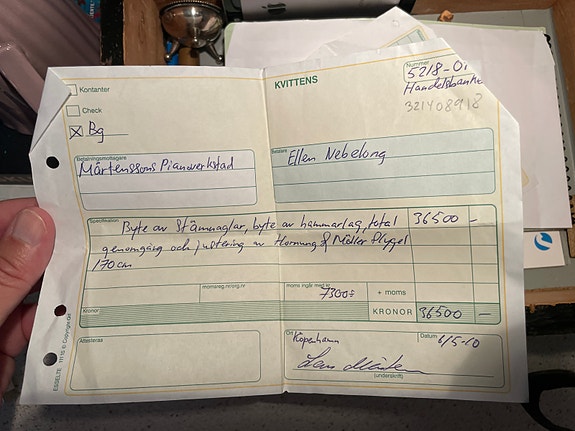 KVITTENS
Nummer
5218-01
Handelsbanke
321408918
Kontanter
Check
Bg
Betalningsmottagare
Mårtenssons Pianoverkstad
Betalare
Ellen Nebelong
Specifikation
Byte av Stämnaglar, byte av hammarlag, total 36500 –
genomgång och justering av Hornung & Möller Flygel
170 cm
momsreg.nr/org.nr
moms ingår med kr
7300:-
+ moms
Kronor
KRONOR 36500 –
Attesteras
Ort
Köpenhamn
Datum
6/5-10
(underskrift)
ESSELTE 11116 © Copyright